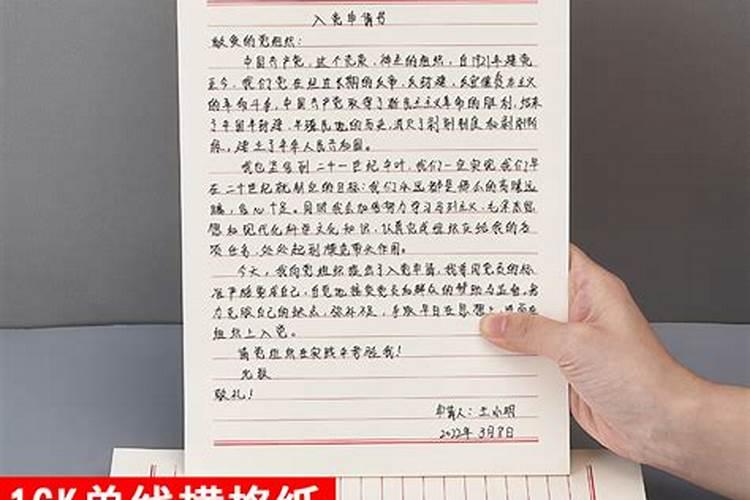 入党申请书
敬爱的党组织：
中国共产党，这个光荣、神圣的组织，自1921年建党
至今，我们党在经过长期的反帝、反封建、反官僚资本主义
的革命斗争，中国共产党取得了新民主主义革命的胜利，结束
了半国半封建、半殖民地的历史，消灭了剥削制度和剥削阶
级，建立了中华人民共和国。
我也坚信到二十一世纪中叶，我们一定实现我们早
在二十世纪就制定的目标：我们永远都是
信心十足。同时我会加倍努力学习马列主义、毛泽东思
想和现代化科学文化知识，认真完成组织交给我的各
项任务，处处起到模范带头作用。
今天，我向党组织提出了入党申请，我要用党员的标
准严格要求自己，自觉地接受党员和群众的帮助与监督，努
力克服自己的缺点，弥补不足，争取早日在思想上，进而在
组织上入党。
请党组织在实践中考验我！
此致
敬礼！
申请人：王小明
2022年3月8日
16K单线横格纸